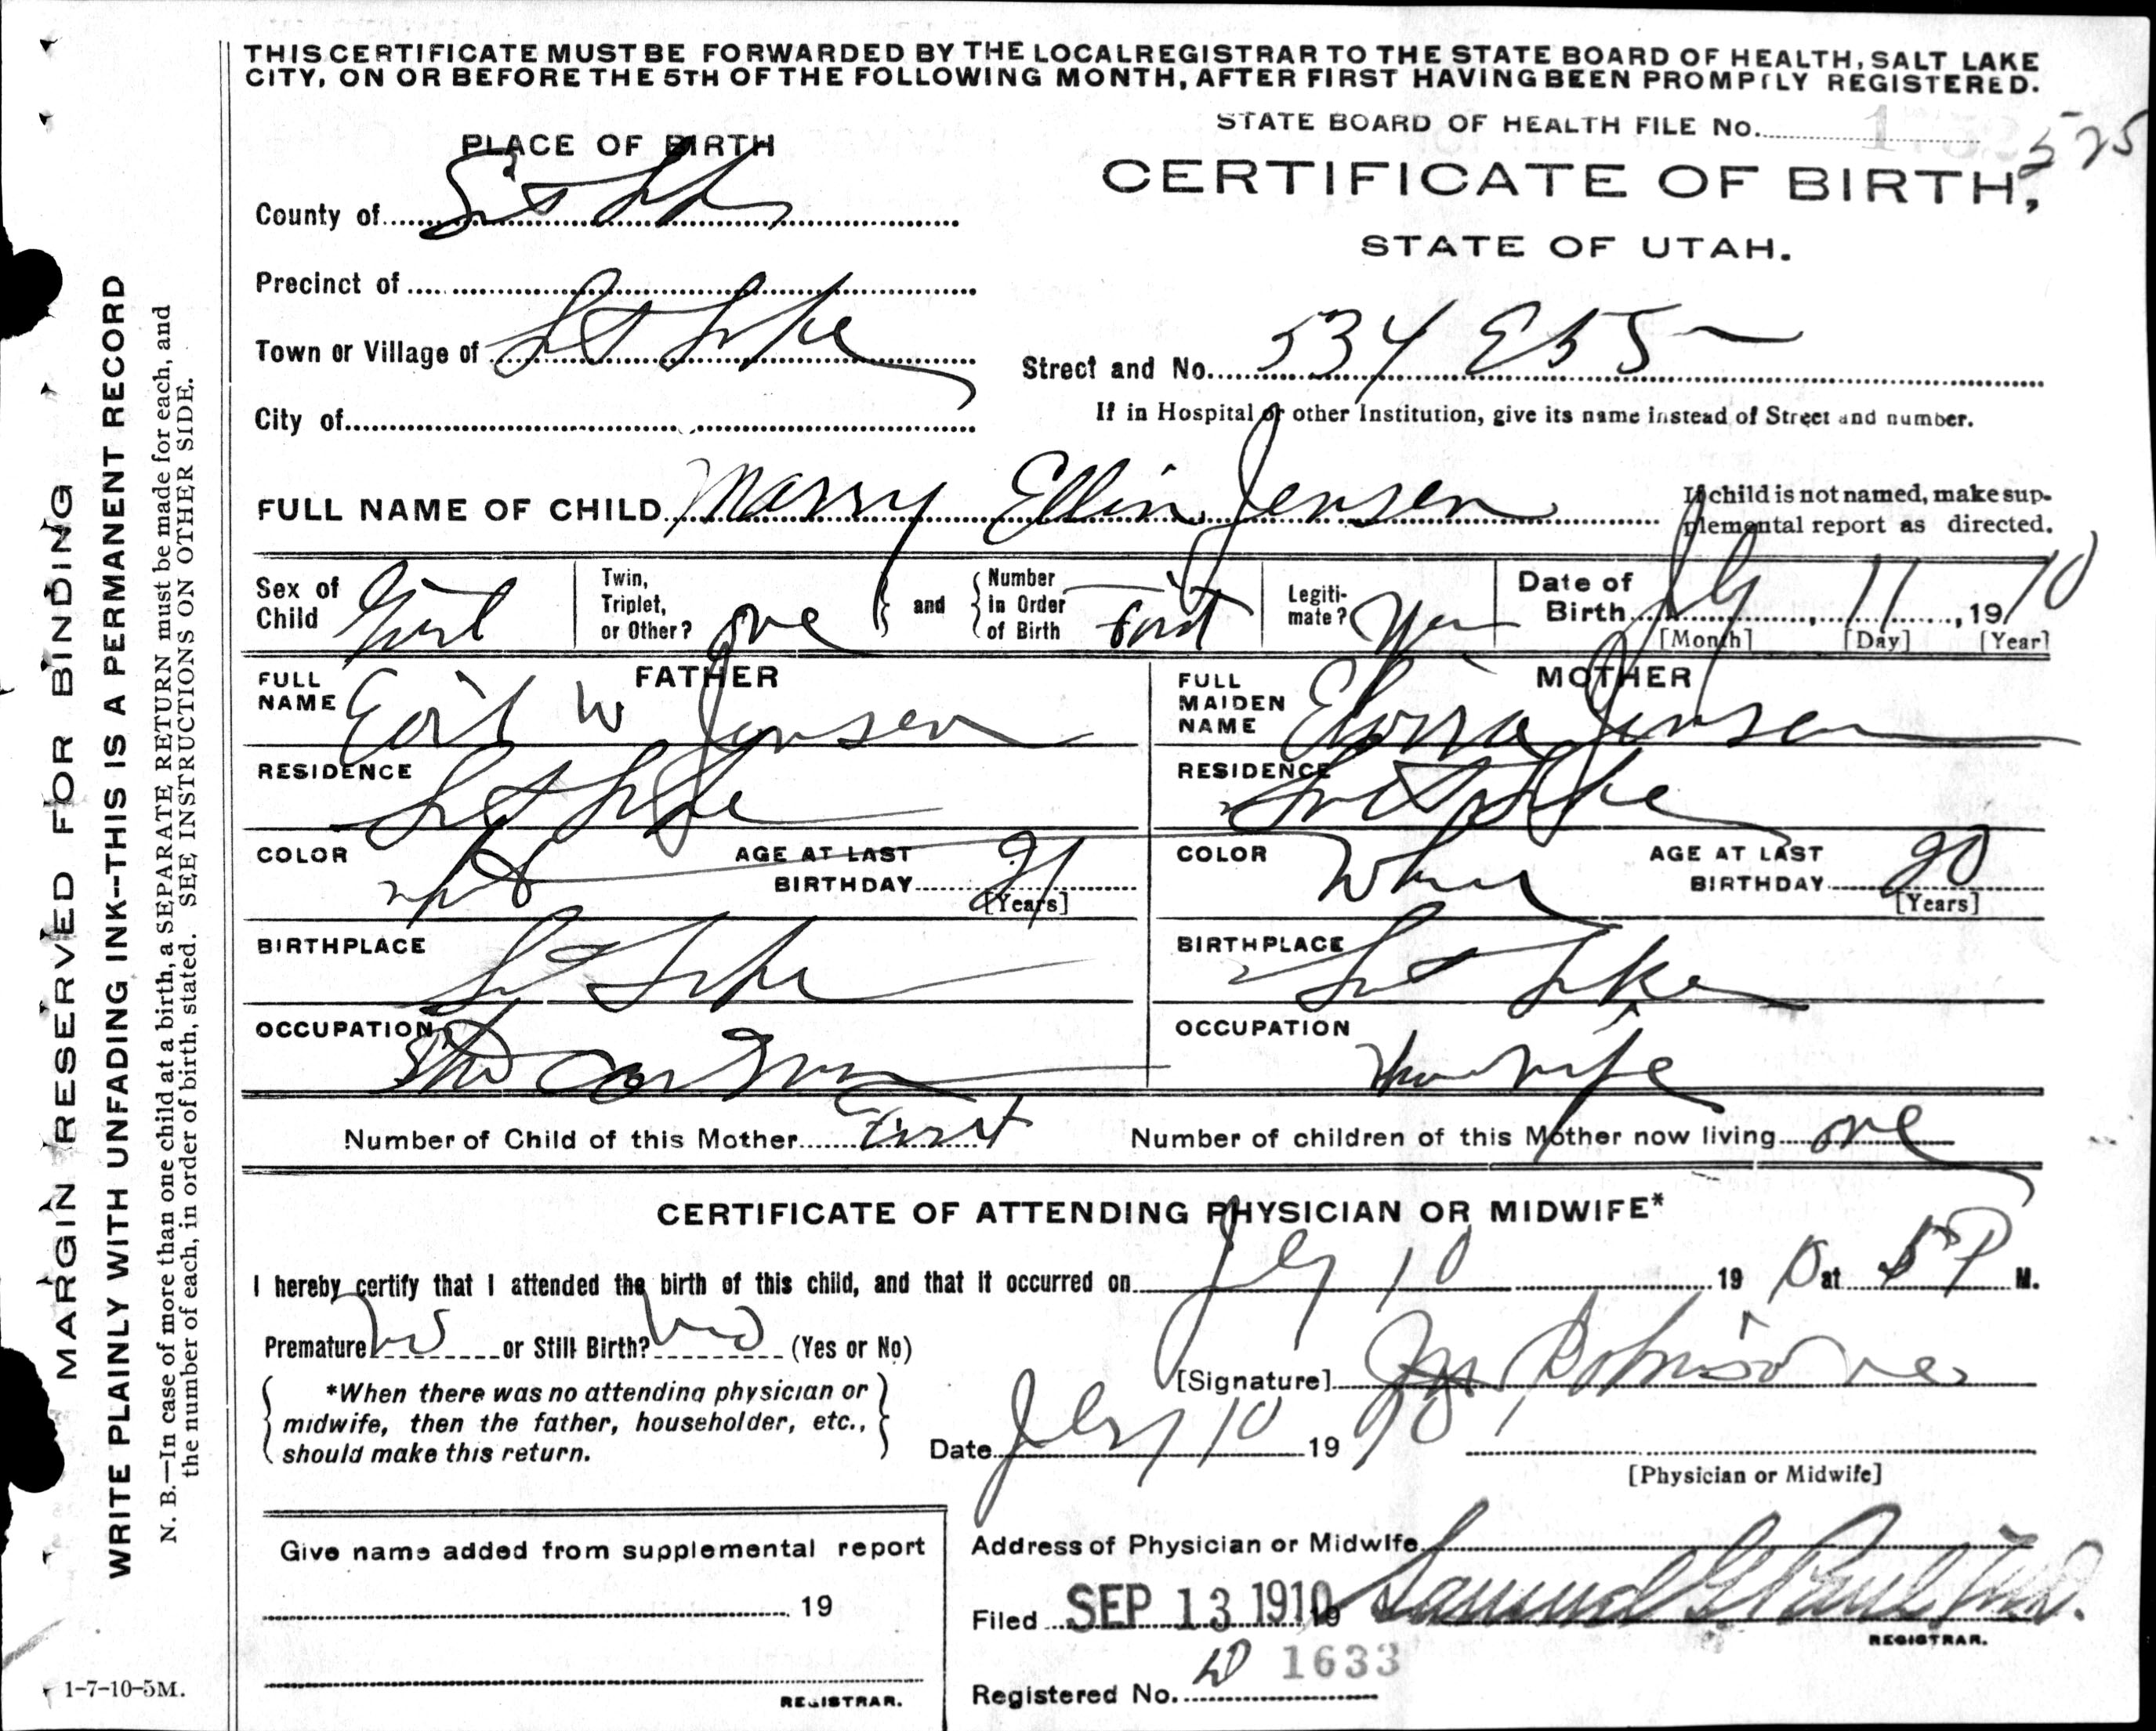 THIS CERTIFICATE MUST BE FORWARDED BY THE LOCAL REGISTRAR TO THE STATE BOARD OF HEALTH, SALT LAKE
CITY, ON OR BEFORE THE 5TH OF THE FOLLOWING MONTH, AFTER FIRST HAVING BEEN PROMPTLY REGISTERED.
STATE BOARD OF HEALTH FILE No. 525
PLACE OF BIRTH
CERTIFICATE OF BIRTH,
STATE OF UTAH.
County of St Lk
Precinct of
Town or Village of St Lake
Street and No. 534 E 5
City of
If in Hospital or other Institution, give its name instead of Street and number.
FULL NAME OF CHILD Marry Ellin Jensen
If child is not named, make sup-
plemental report as directed.
Sex of Child Girl
Twin, Triplet, or Other? one and
Number in Order of Birth First
Legiti-mate? Yes
Date of Birth July 11, 1910
[Month] [Day] [Year]
FATHER
FULL NAME W Jensen
MOTHER
FULL MAIDEN NAME Jensen
RESIDENCE St Lake
RESIDENCE St Lake
COLOR AGE AT LAST BIRTHDAY 21 [Years]
COLOR White AGE AT LAST BIRTHDAY 20 [Years]
BIRTHPLACE St Lake
BIRTHPLACE St Lake
OCCUPATION Car Man
OCCUPATION Housewife
Number of Child of this Mother First
Number of children of this Mother now living one
CERTIFICATE OF ATTENDING PHYSICIAN OR MIDWIFE*
I hereby certify that I attended the birth of this child, and that it occurred on July 10 1910 at 5 P M.
Premature no or Still Birth? no (Yes or No)
*When there was no attending physician or
midwife, then the father, householder, etc.,
should make this return.
[Signature] Robinson
Date July 10 1910
[Physician or Midwife]
Give name added from supplemental report
19
REGISTRAR.
Address of Physician or Midwife
Filed SEP 13 1910 19 Samuel G Paul, M.D.
REGISTRAR.
Registered No. 1633
MARGIN RESERVED FOR BINDING
WRITE PLAINLY WITH UNFADING INK--THIS IS A PERMANENT RECORD
N. B.—In case of more than one child at a birth, a SEPARATE RETURN must be made for each, and
the number of each, in order of birth, stated. SEE INSTRUCTIONS ON OTHER SIDE.
1-7-10-5M.